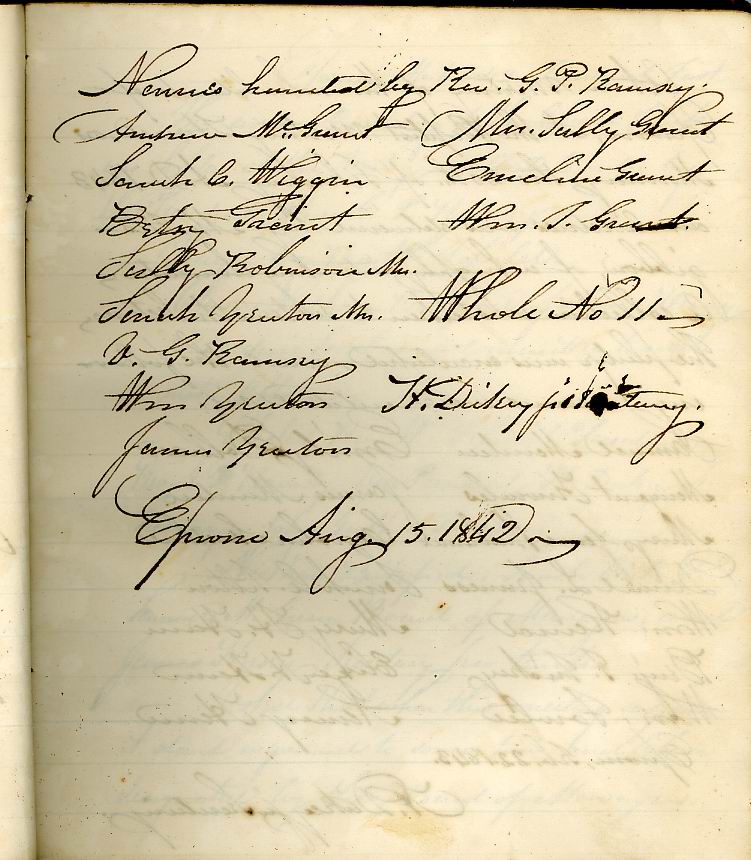 Names handed by Rev. G. P. Ramsey.
Andrew McGrant Mrs. Sally Grant
Sarah C. Wiggin Emeline Grant
Betsy Grant Wm. T. Grant.
Sally Robinson Mrs.
Sarah Yeaton Mrs. Whole No 11
V. G. Ramsey
Wm Yeaton H. Dickey
James Yeaton
Epsom Aug 15. 1842